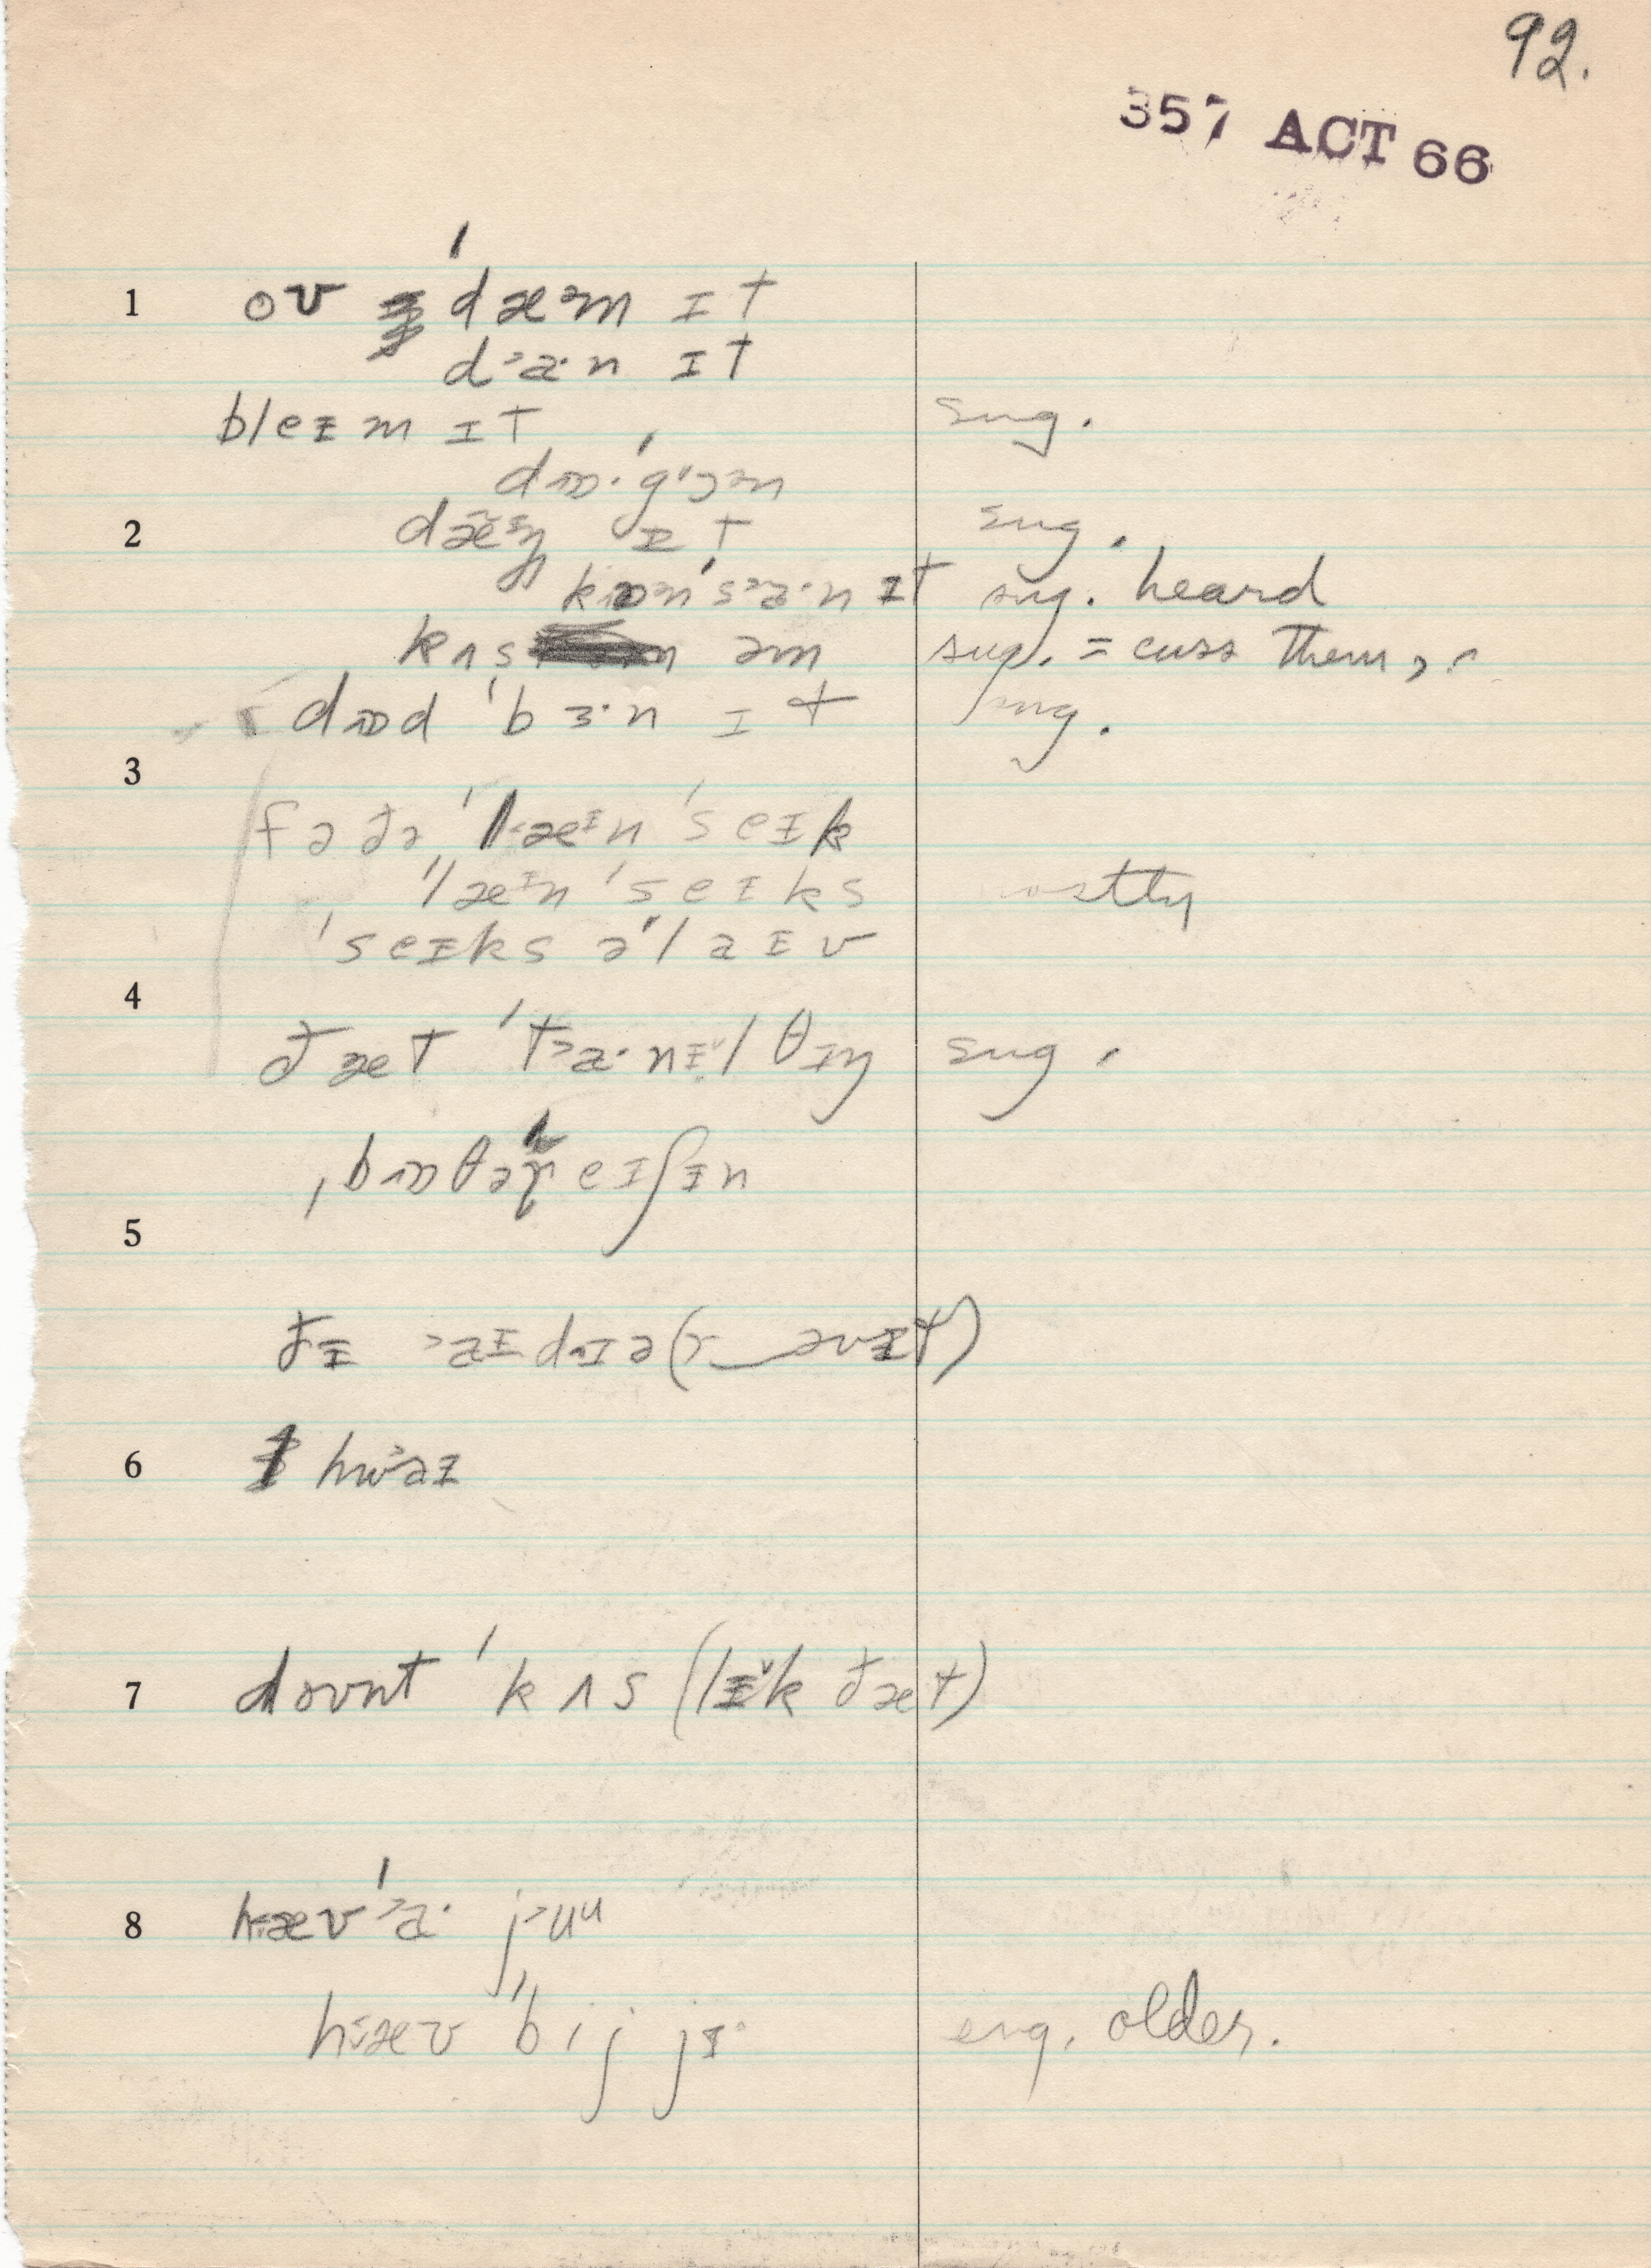 92.
357 ACT 66
1 oʊ ˈdæᵊm ɪt
d˃a·n ɪt
bleɪm ɪt sug.
dɒ·ˈgɒᵊn
2 dæ̃ᵋŋ ɪt sug.
kɒnˈs˃a·n ɪt sug. heard
kʌs əm sug. = cuss them,
dɒd ˈbɜ·n ɪt sug.
3
fə ðə ˈlæᵻn ˈseɪk
ˈlæᵻn ˈseɪks mostly
ˈseɪks əˈlaɪv
4 ðæt ˈt˃a·nɪ˅l θɪŋ sug.
ˌbɒðəˈreɪʃɪn
5
ðɪ ˃aɪdɪə(r‿əvɪt)
6 hw˃aɪ
7 doʊnt ˈkʌs (lɪ˅k ðæt)
8 hæʊ ˈ˃a· j˃uᵘ
hæʊ ˈbij jɪ eng. older.